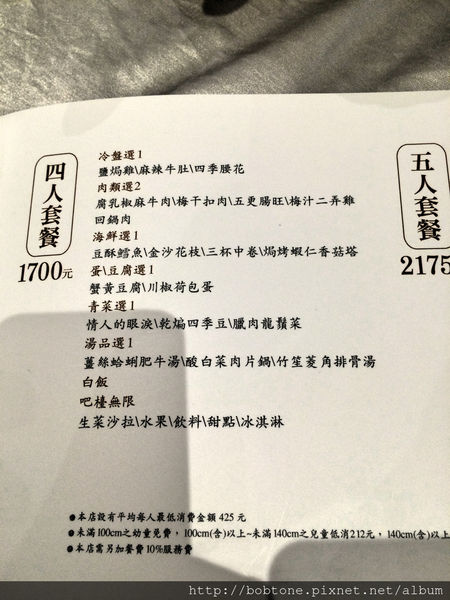 四人套餐
1700元
冷盤選1
鹽焗雞\麻辣牛肚\四季腰花
肉類選2
腐乳椒麻牛肉\梅干扣肉\五更腸旺\梅汁二弄雞
回鍋肉
海鮮選1
豆酥鱈魚\金沙花枝\三杯中卷\焗烤蝦仁香菇塔
蛋\豆腐選1
蟹黃豆腐\川椒荷包蛋
青菜選1
情人的眼淚\乾煸四季豆\臘肉龍鬚菜
湯品選1
薑絲蛤蜊肥牛湯\酸白菜肉片鍋\竹笙菱角排骨湯
白飯
吧檯無限
生菜沙拉\水果\飲料\甜點\冰淇淋
五人套餐
2175
●本店設有平均每人最低消費金額 425 元
●未滿 100cm之幼童免費，100cm(含)以上~未滿 140cm之兒童低消212元，140cm(含)以上
●本店需另加餐費 10%服務費
http://bobtone.pixnet.net/album